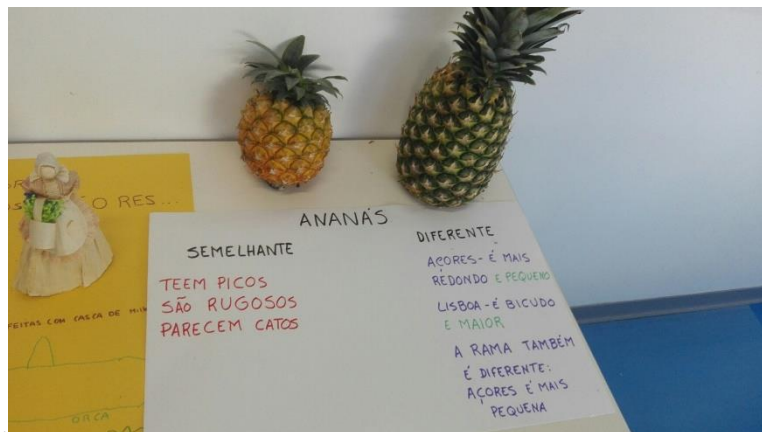 O RES...
FEITAS COM CASCA DE
ORCA
ANANÁS
SEMELHANTE
TEEM PICOS
SÃO RUGOSOS
PARECEM CATOS
DIFERENTE
AÇORES - É MAIS
REDONDO E PEQUENO
LISBOA - É BICUDO
E MAIOR
A RAMA TAMBÉM
É DIFERENTE:
AÇORES É MAIS
PEQUENA